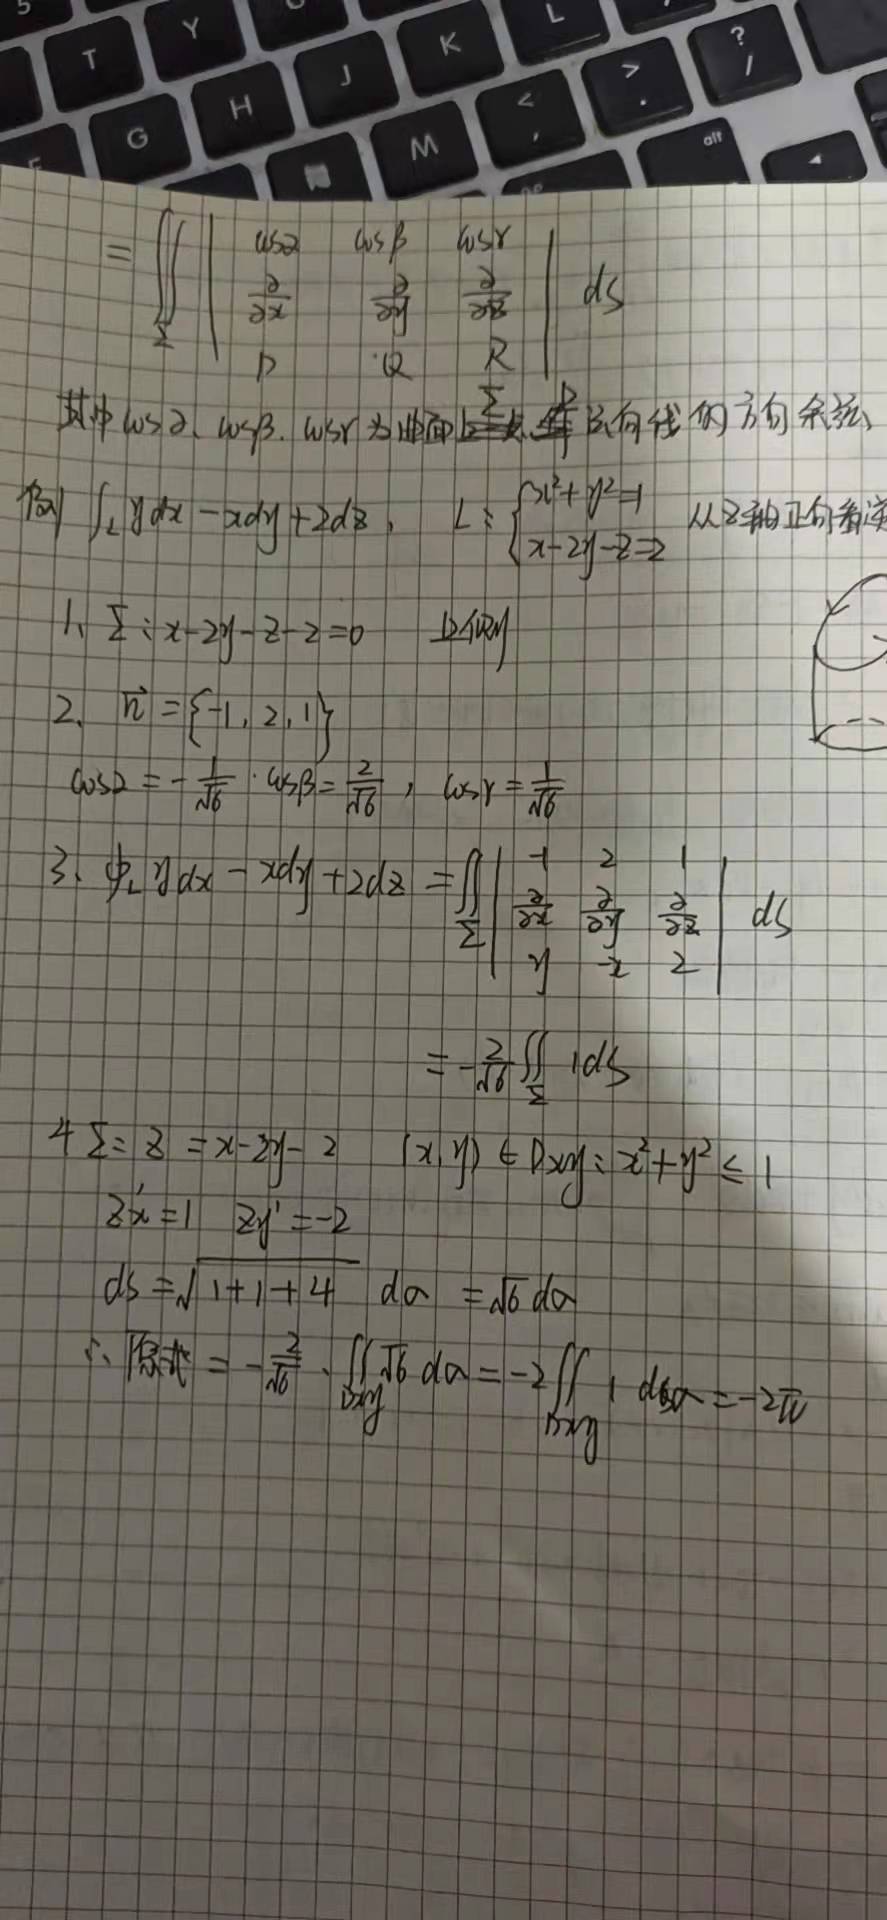 5
T Y L ? /
G H J K > .
M < , alt
= ∬_Σ | cosα cosβ cosγ | ds
| ∂/∂x ∂/∂y ∂/∂z |
| P Q R |
其中cosα、cosβ、cosγ为曲面Σ上 法向线的方向余弦、
例 ∫_L ydx - xdy + 2dz, L: { x²+y²=1
x-2y-z=2 从z轴正向看逆
1、Σ: x-2y-z-2=0 上侧
2、n⃗ = {-1, 2, 1}
cosα = -1/√6 · cosβ = 2/√6, cosγ = 1/√6
3、∮_L ydx - xdy + 2dz = ∬_Σ | -1 2 1 | ds
| ∂/∂x ∂/∂y ∂/∂z |
| y -x 2 |
= -2/√6 ∬_Σ 1ds
4 Σ: z = x-2y-2 (x,y) ∈ Dxy: x²+y² ≤ 1
zx' = 1 zy' = -2
ds = √(1+1+4) dσ = √6 dσ
∴ 原式 = -2/√6 · ∬_Dxy √6 dσ = -2∬_Dxy 1 dσ = -2π